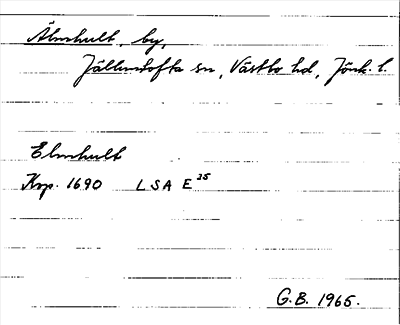 Älmhult, by,
Jällundtofta sn, Västbo hd, Jönk. l.
Elmhult
Kop. 1690 LSA E 35
G.B. 1965.